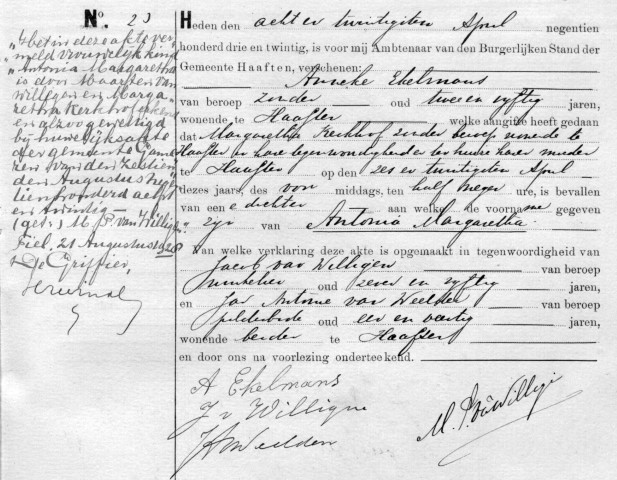 No. 23
"Het in deze akte ver-
meld vrouwelijk kind
"Antonia Margaretha"
is door Maarten van
Willigen en Marga-
retha Kerkhof erken
en alzoo gewettigd
bij huwelijksakte
der gemeente
ren van den zestien
den Augustus ne-
tienhonderd acht
en twintig
(get.) M. P. van Willige
Tiel, 21 Augustus 1928
De Griffier,
Heden den acht en twintigsten April negentien
honderd drie en twintig, is voor mij Ambtenaar van den Burgerlijken Stand der
Gemeente Haaften, verschenen:
Anneke Ekelmans
van beroep zonder oud twee en vijftig jaren,
wonende te Haaften welke aangifte heeft gedaan
dat Margaretha Kerkhof zonder beroep wonende te
Haaften in hare tegenwoordigheid en ten huize harer moeder
te Haaften op den zes en twintigsten April
dezes jaars, des voor middags, ten half negen ure, is bevallen
van een e dochter aan welke de voorna me gegeven
zijn van Antonia Margaretha
Van welke verklaring deze akte is opgemaakt in tegenwoordigheid van
Jacob van Willigen van beroep
oud zeven en vijftig jaren,
en Jan Antonie van Weelden van beroep
oud een en veertig jaren,
wonende beiden te Haaften
en door ons na voorlezing onderteekend.
A Ekelmans
J v Willigen
Weelden
M. P. v Willige